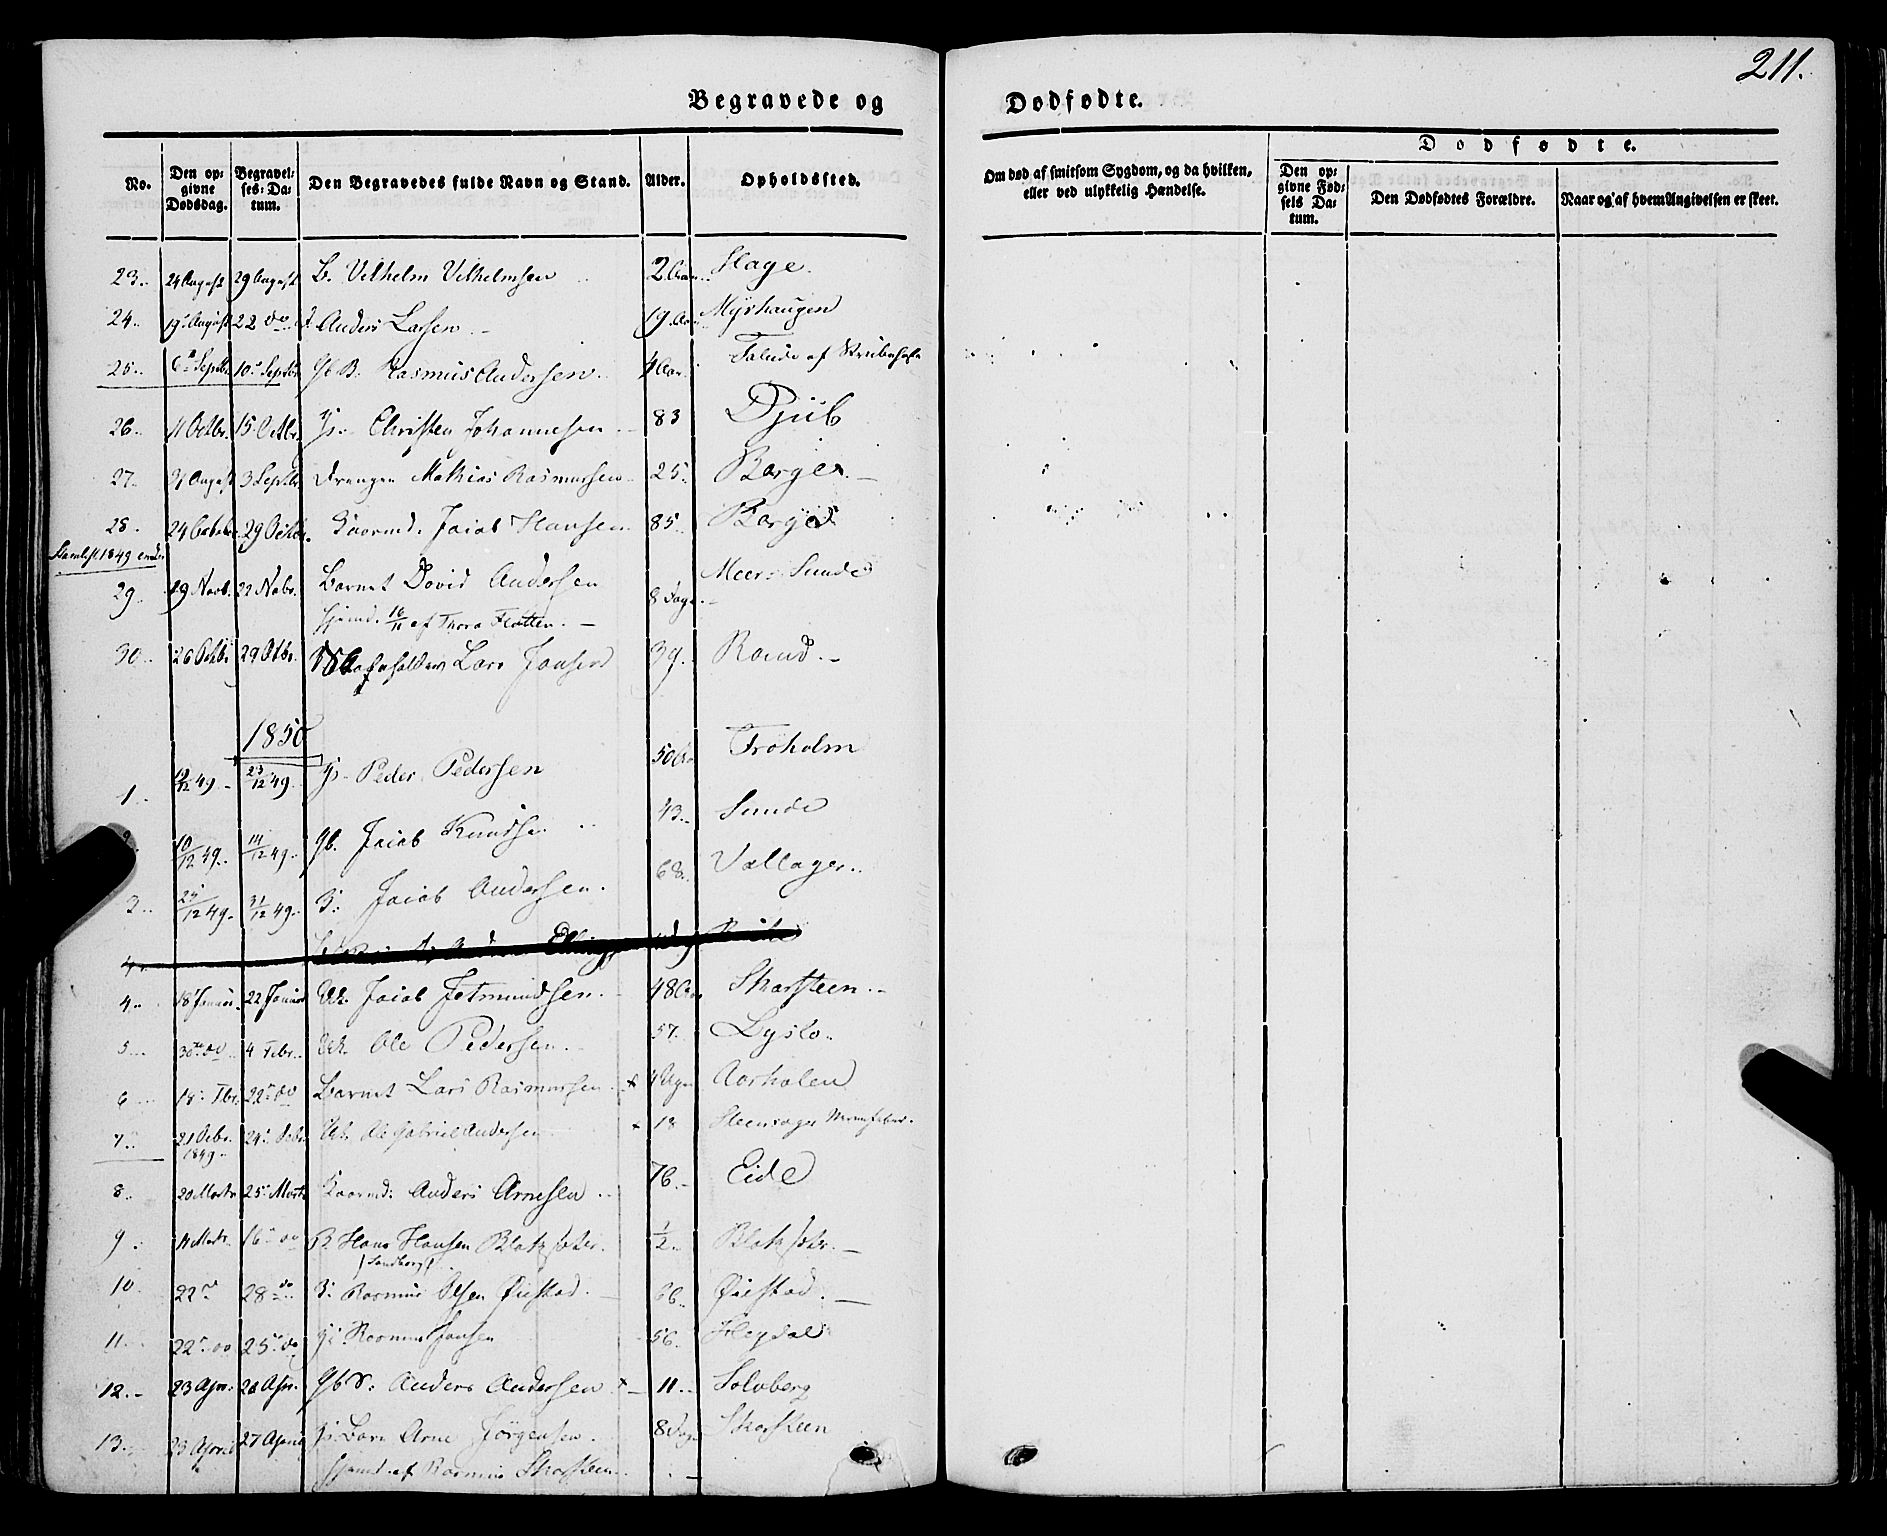 211.
Begravede og Dødfødte.
No. Den opgivne Dødsdag. Begravelses-Datum. Den Begravedes fulde Navn og Stand. Alder. Opholdssted. Om død af smitsom Sygdom, og da hvilken, eller ved ulykkelig Hændelse. Dødfødte. Den opgivne Fødsels Datum. Den Dødfødtes Forældre. Naar og af hvem Angivelsen er skeet.
23. 24 August 29 August B. Vilhelm Vilhelmsen 2 Aar Hage.
24. 19 August 22 do Anders Larsen 19 Aar Myrhaugen
25. 6 Septbr 10 Septbr Gb B. Rasmus Andersen 4 Aar Talude af
26. 11 Octbr. 15 Octbr. Christen Johannesen 83 Djub
27. 31 August 3 Septbr. Drengen Mathias Rasmussen 25. Berger
28. 24 October 29 Octbr. Kaarmd. Jacob Hansen 85 Berger
1849
29. 19 Novb. 22 Nobr. Barnet David Andersen 8 Dage Meers Sunde
hjemd. 16/11 af Thora Flatten.
30. 26 Octbr 29 Octbr. Lars Jansen 39. Raund
1850
1. 19/12 49 23/12 49. Peder Pedersen 50 Aar Troholm
2. 10/12 49. 14/12 49. Gb. Jacob Knudsen 43. Sunde
3. /12 49. 31/12 49. Jacob Andersen. 68. Vallager.
4.
4. 18 Januar 22 Januar Jacob Jetmundsen. 48 Aar Skarsteen.
5. 30 do 4 Febr. Ole Pedersen. 57. Lyslo.
6 18 Fbr. 22 do Barnet Lars Rasmussen 4 Uger Aarholen
7. 21 Debr. 1849 24 Debr Ole Gabriel Andersen 18
8. 20 Marts 25 Marts Kaarmd: Anders Arnesen 76. Eide
9. 11 Marts 16 do B. Hans Hansen Blakseter. 1/2 Blakseter.
(Sandborg)
10 22 28 do Rasmus Olsen Øiestad. 66. Øiestad.
11. 22 do 25 do Rasmus Jansen 56. Heydal
12. 23 Apr. 28 Apr. Gb S: Anders Andersen 11. Solvberg
13. 23 April 27 April Barn Arne Jørgensen. 8 Dage Skarsteen
hjemd. af Rasmus Skarsteen.